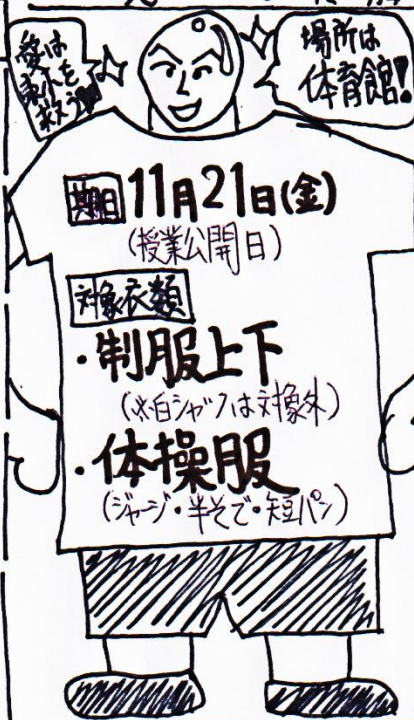 愛は
救う
場所は
体育館!
期日 11月21日(金)
(授業公開日)
対象衣類
・制服上下
(※白シャツは対象外)
・体操服
(ジャージ・半そで・短パン)